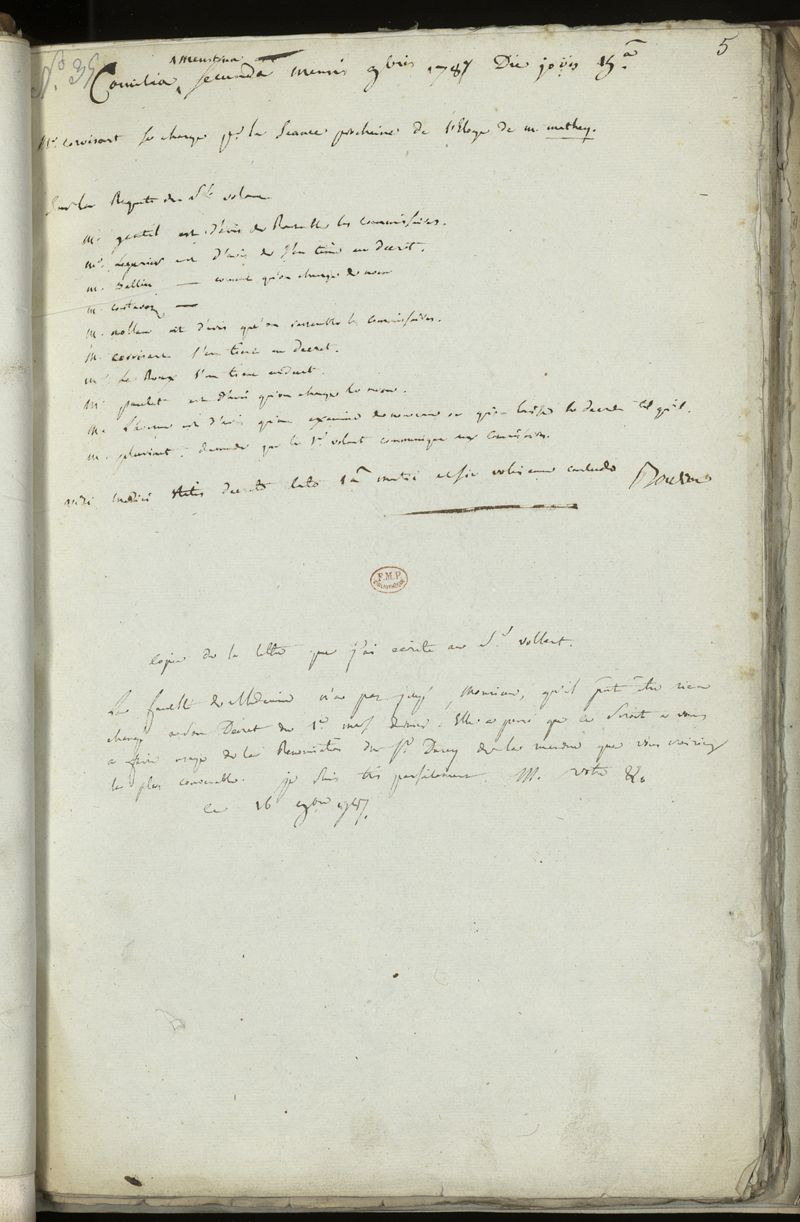 5
No. 35
menstrua
Comitia secunda mensis 9bris 1787 Die jovis 15a
Mr. corvisart se charge pr. la Seance prochaine de l'Eloge de m. mathey.
Sur la Requete du Sr. volant
Mr. gentil est d'avis de Rassembler les commissaires.
Mr. est d'avis de s'en tenir au Decret.
m. Sallin — comme qu'on change de nom
m. —
m. est d'avis qu'on rassemble les commissaires.
M. corvisart s'en tient au Decret.
mr. Le Roux s'en tient au decret.
Mr. paulet est d'avis qu'on change le nom.
Mr. est d'avis qu'on examine de nouveau ou qu'on laisse le decret tel qu'il.
m. demande que le Sr. volant communique aux Commissaires.
decreto dato 1a martii et sic vobiscum concludo Bourru
F.M.P.
copie de la lettre que j'ai ecrite au Sr. vollant.
La faculté de Médecine n'a pas jugé, Monsieur, qu'il put être rien
changé a son Décret du 1er. mars dernier. Elle a pensé que ce seroit a vous
a faire usage de la Renonciation du Sr. de la maniere que vous croiriez
la plus convenable. je suis très parfaitement M. votre &c.
ce 16 9bre 1787.